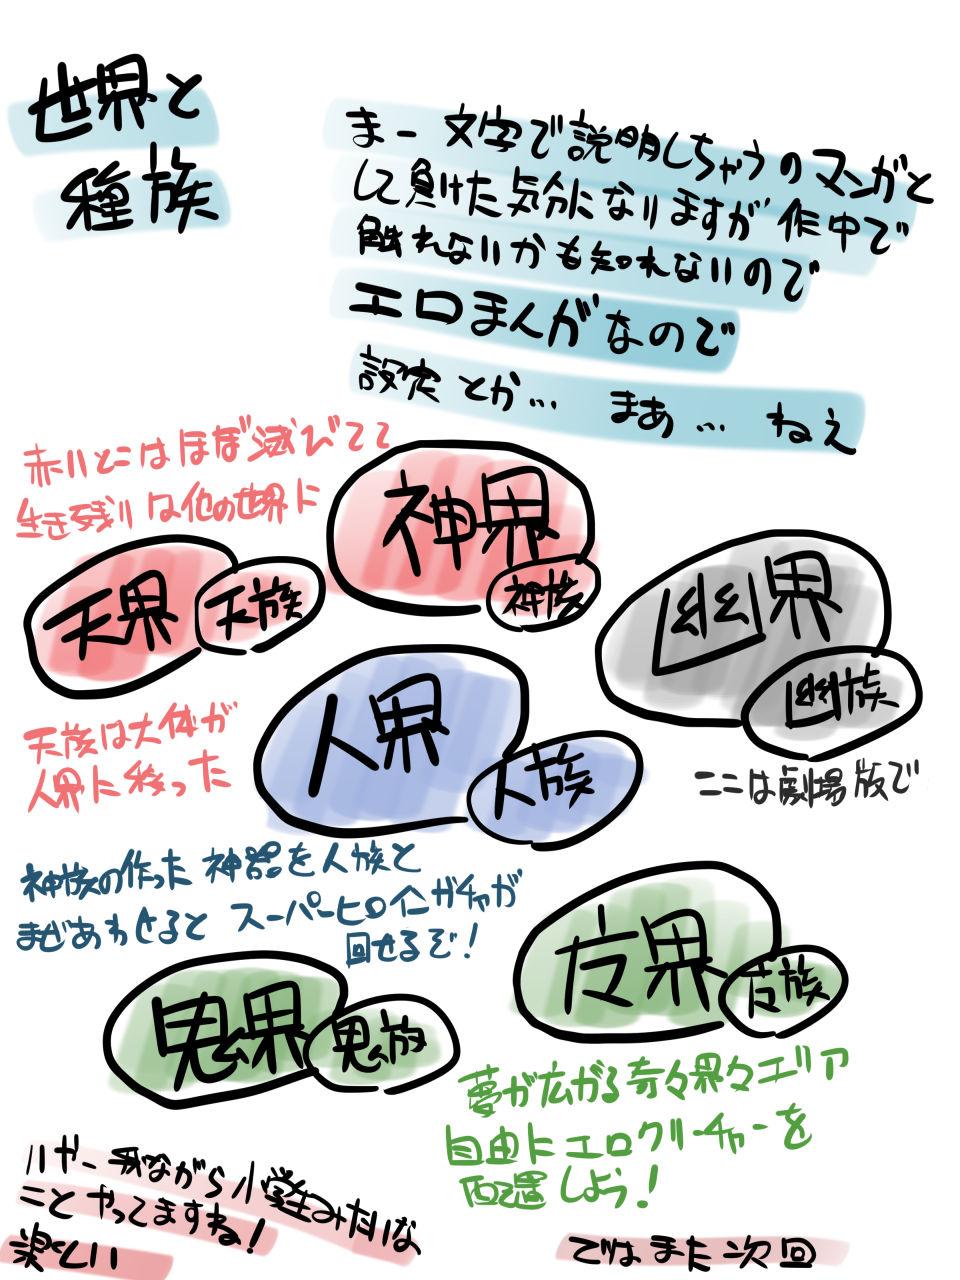 世界と
種族
まー文字で説明しちゃうのマンガと
して負けた気分になりますが作中で
触れないかも知れないので
エロまんがなので
設定とか… まあ… ねえ
赤いとこはほぼ滅びてて
生き残りは他の世界に
神界
神族
天界
天族
幽界
幽族
人界
人族
天族は大体が
人界に移った
ここは劇場版で
神族の作った神器を人族と
まぜあわせるとスーパーヒロインガチャが
回せるぞ!
鬼界
鬼族
皮界
皮族
夢が広がる奇々界々エリア
自由にエロクリーチャーを
配置しよう!
いやー我ながら小学生みたいな
ことやってますね!
楽しい
ではまた次回